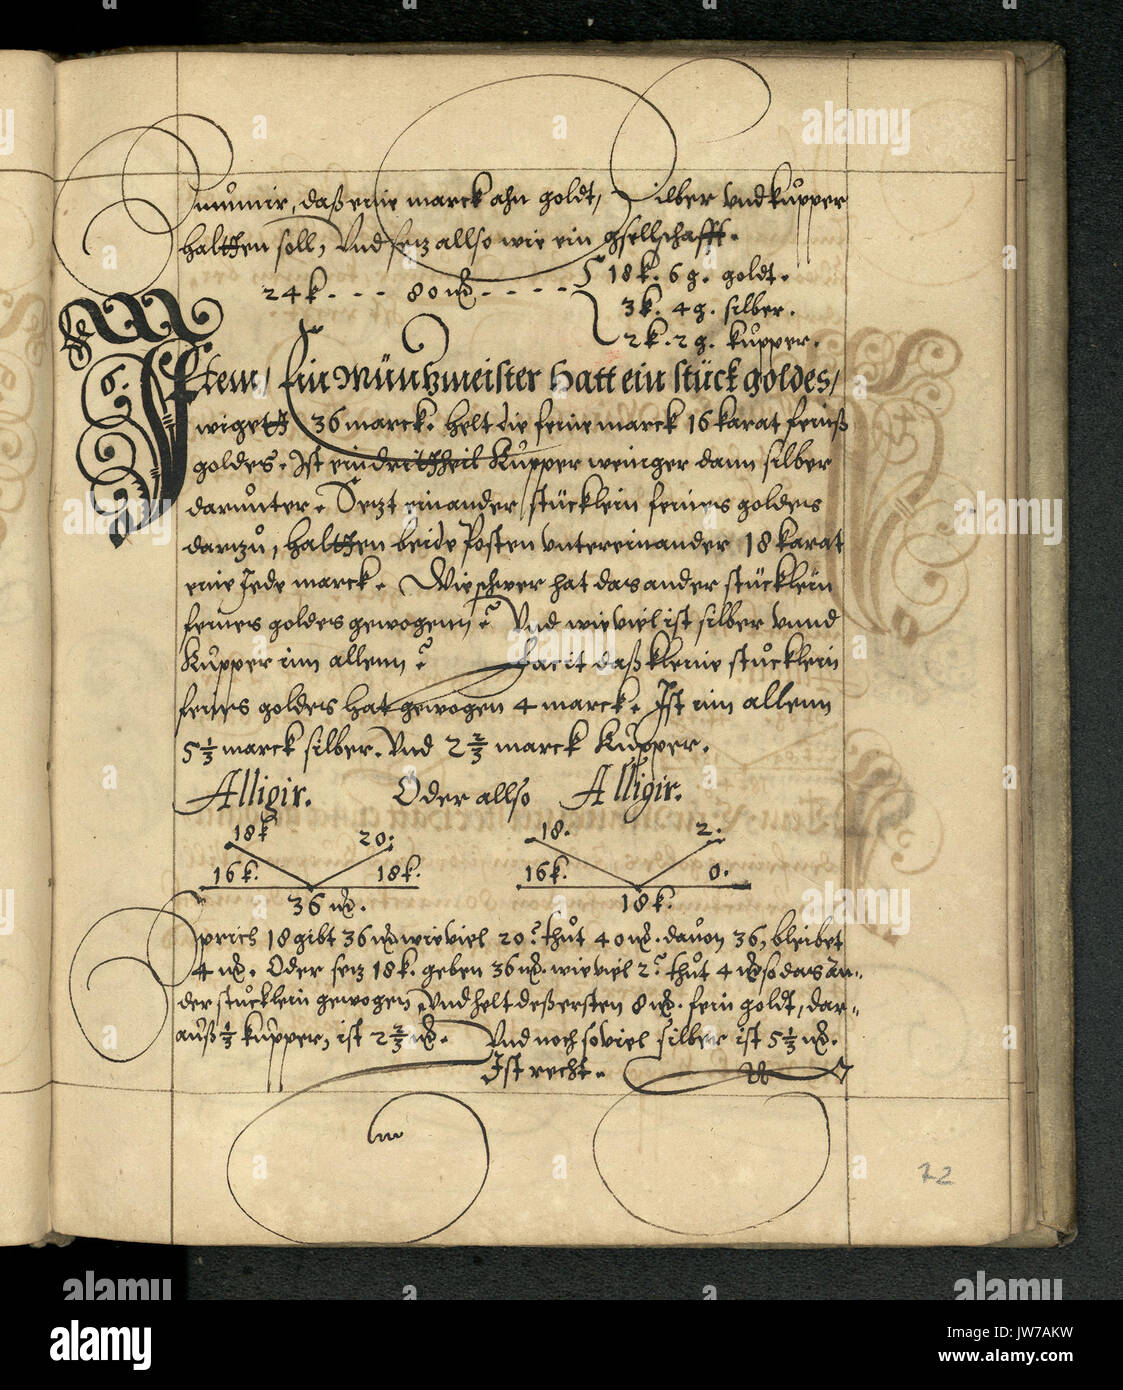 Nun nimir, daß eine marck ahn goldt, Silber vnd kupper
haltthen soll, Vnd setz allso wie ein gsellschafft.
18 k. 6 g. goldt.
24 k. - - - 80 - - - -
3 k. 4 g. silber.
2 k. 2 g. kupper.
Item/ Ein Müntzmeister hatt ein stück goldes/
wigett 36 marck. helt die feine marck 16 karat feinß
goldes. Ist ein dritttheil Kupper weniger dann silber
darunter. Setzt ein ander stücklein feines goldes
darzu, haltthen beide Posten vntereinander 18 karat
eine Jede marck. Wie schwer hat das ander stücklein
feines goldes gewogenn? Vnd wie viel ist silber vnnd
Kupper inn allenn? Facit daß kleine stucklein
feines goldes hat gewogen 4 marck. Ist inn allenn
5 1/3 marck silber. Vnd 2 2/3 marck Kupper.
Alligir. Oder allso Alligir.
18 k 20. 18. 2.
16 k. 18 k. 16 k. 0.
36 18 k.
Sprich 18 gibt 36 wie viel 20? thut 40 . dauon 36, bleibet
4 . Oder setz 18 k. geben 36 . wie viel 2? thut 4 so das an=
der stucklein gewogen, Vnd helt deß ersten 8 . fein goldt, dar=
auß 1/3 kupper, ist 2 2/3 . Vnd noch so viel silber ist 5 1/3 .
Ist recht.
72
alamy
Image ID: JW7AKW
www.alamy.com